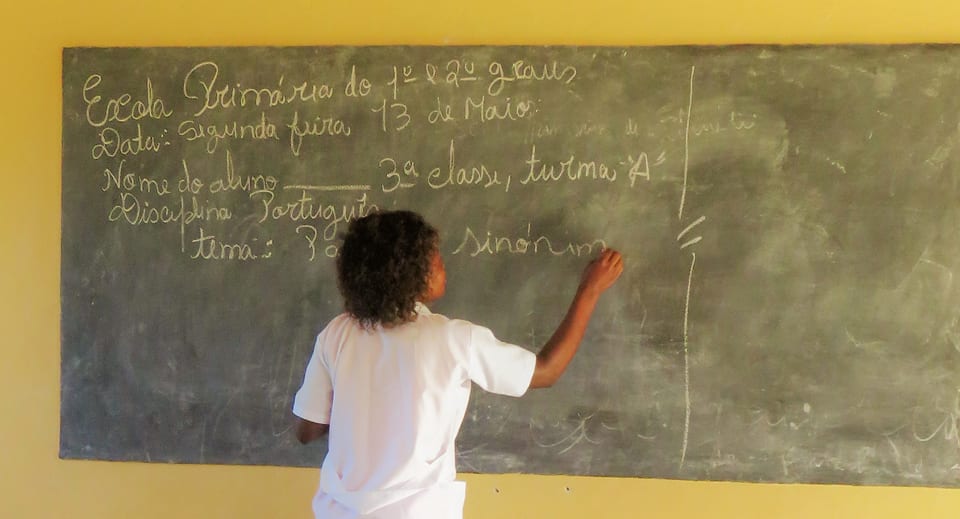 Escola Primária do 1º e 2º graus
Data: Segunda feira 13 de Maio:
Nome do aluno ______ 3ª classe, turma "A"
Disciplina Português
tema: sinónim